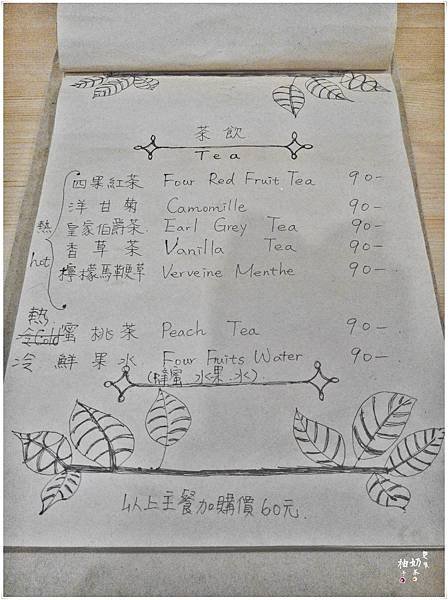 茶飲
Tea
四果紅茶 Four Red Fruit Tea 90-
洋甘菊 Camomille 90-
熱 皇家伯爵茶 Earl Grey Tea 90-
hot 香草茶 Vanilla Tea 90-
檸檬馬鞭草 Verveine Menthe 90-
熱
冷Cold 蜜桃茶 Peach Tea 90-
冷 鮮果水 Four Fruits Water 90-
(蜂蜜水果水)
以上主餐加購價60元.